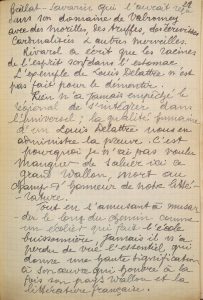 Brillat-Savarin qui l'aurait reçu
dans son domaine de Valromey
avec des morilles, des truffes, des écrevisses
cardinalisées & autres merveilles.
Rivarol a écrit que les racines
de l'esprit sont dans l'estomac
L'exemple de Louis Delattre n'est
pas fait pour le démentir.
Rien n'a jamais empêché le
régional de s'intégrer dans
l'Universel; la qualité humaine
d'un Louis Delattre nous en
administre la preuve. C'est
pourquoi je n'ai pas voulu
manquer de saluer ici ce
grand Wallon, mort au
champ d'honneur de notre litté-
rature.
Tout en s'amusant à musar-
der le long du chemin comme
un écolier qui fait l'école
buissonnière, jamais il n'a
perdu de vue l'essentiel, qui
donne une haute signification
à son œuvre qui honore à la
fois son pays wallon et la
littérature française.